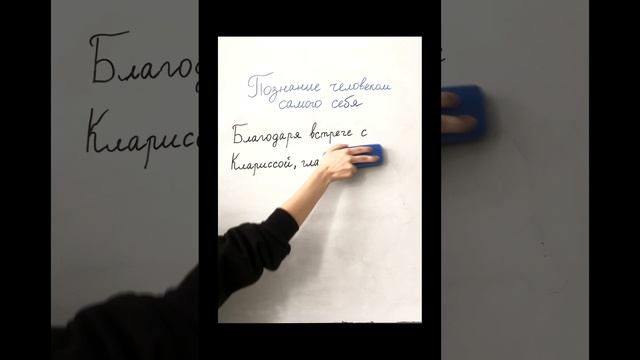 Познание человеком
самого себя
Благодаря встрече с
Клариссой, гла